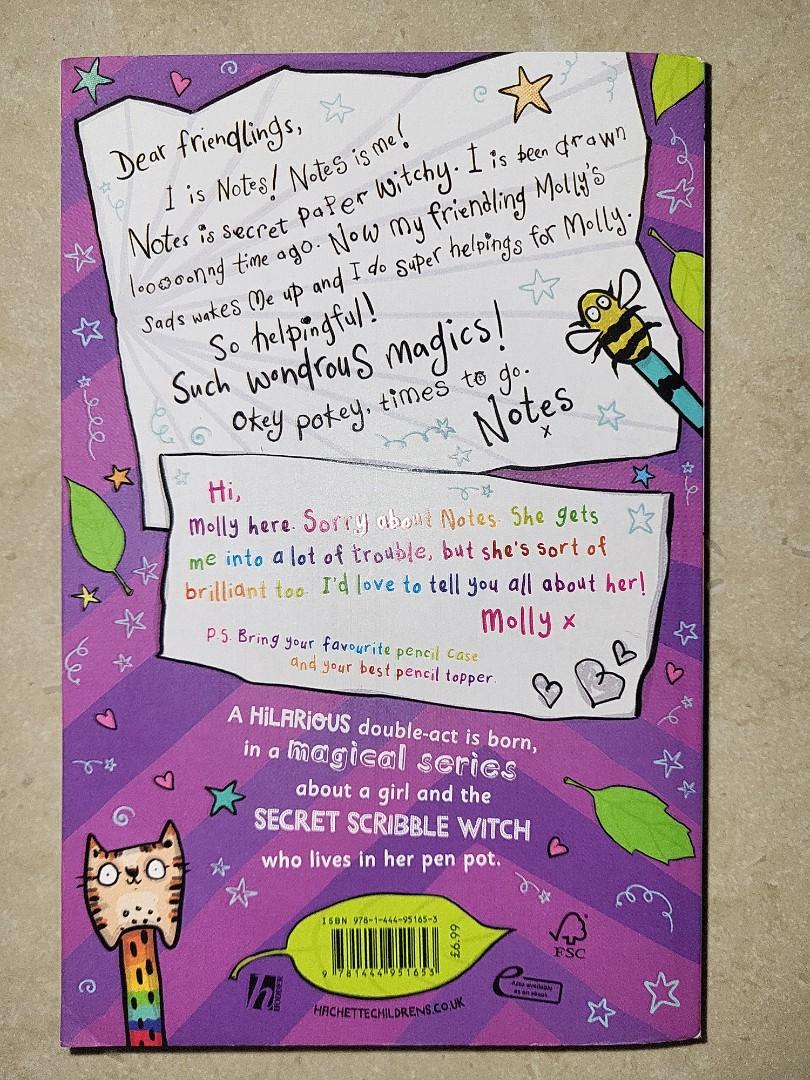 Dear friendlings,
I is Notes! Notes is me!
Notes is secret paper Witchy. I is been drawn
looooonng time ago. Now my friendling Molly's
sads wakes me up and I do super helpings for Molly.
So helpingful!
Such wondrous magics!
Okey pokey, times to go.
Notes
x
Hi,
Molly here. Sorry about Notes. She gets
me into a lot of trouble, but she's sort of
brilliant too. I'd love to tell you all about her!
Molly x
P.S. Bring your favourite pencil case
and your best pencil topper.
A HiLARiOUS double-act is born,
in a magical series
about a girl and the
SECRET SCRIBBLE WITCH
who lives in her pen pot.
ISBN 978-1-444-95165-3
£6.99
9 781444 951653
h
HACHETTECHILDRENS.CO.UK
FSC
e
Also available
as an ebook